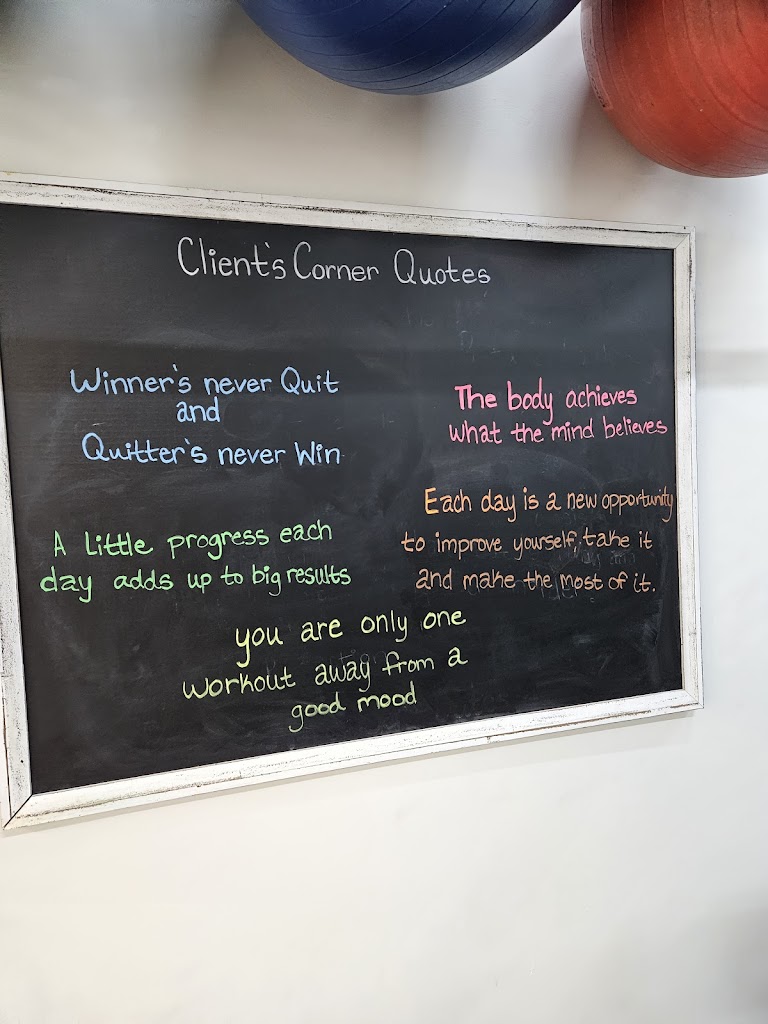 Client's Corner Quotes
Winner's never Quit
and
Quitter's never Win
The body achieves
what the mind believes
A little progress each
day adds up to big results
Each day is a new opportunity
to improve yourself, take it
and make the most of it.
you are only one
workout away from a
good mood